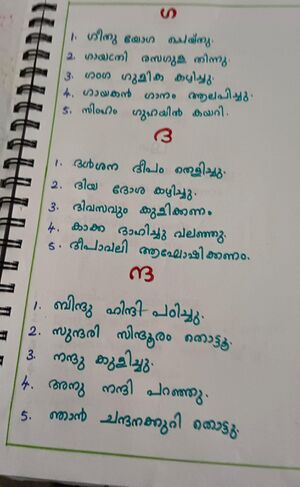 ഗ
1. ഗീനു യോഗ ചെയ്തു.
2. ഗായത്രി രസഗുള തിന്നു.
3. ഗംഗ ഗുളിക കഴിച്ചു.
4. ഗായകൻ ഗാനം ആലപിച്ചു.
5. സിംഹം ഗുഹയിൽ കയറി.
ദ
1. ദർശന ദീപം തെളിച്ചു.
2. ദിയ ദോശ കഴിച്ചു.
3. ദിവസവും കുളിക്കണം
4. കാക്ക ദാഹിച്ചു വലഞ്ഞു.
5. ദീപാവലി ആഘോഷിക്കണം.
ന്ദ
1. ബിന്ദു ഹിന്ദി പഠിച്ചു.
2. സുന്ദരി സിന്ദൂരം തൊട്ടു.
3. നന്ദു കുളിച്ചു.
4. അനു നന്ദി പറഞ്ഞു.
5. ഞാൻ ചന്ദനക്കുറി തൊട്ടു.